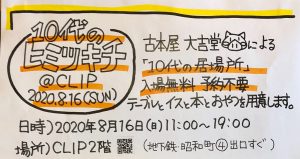 10代の
ヒミツキチ
@CLIP
2020.8.16(SUN)
古本屋 大吉堂による
「10代の居場所」
入場無料 予約不要
テーブルとイスと本とおやつを用意します。
日時)2020年8月16日(日)11:00~19:00
場所)CLIP2階 (地下鉄・昭和町④出口すぐ)